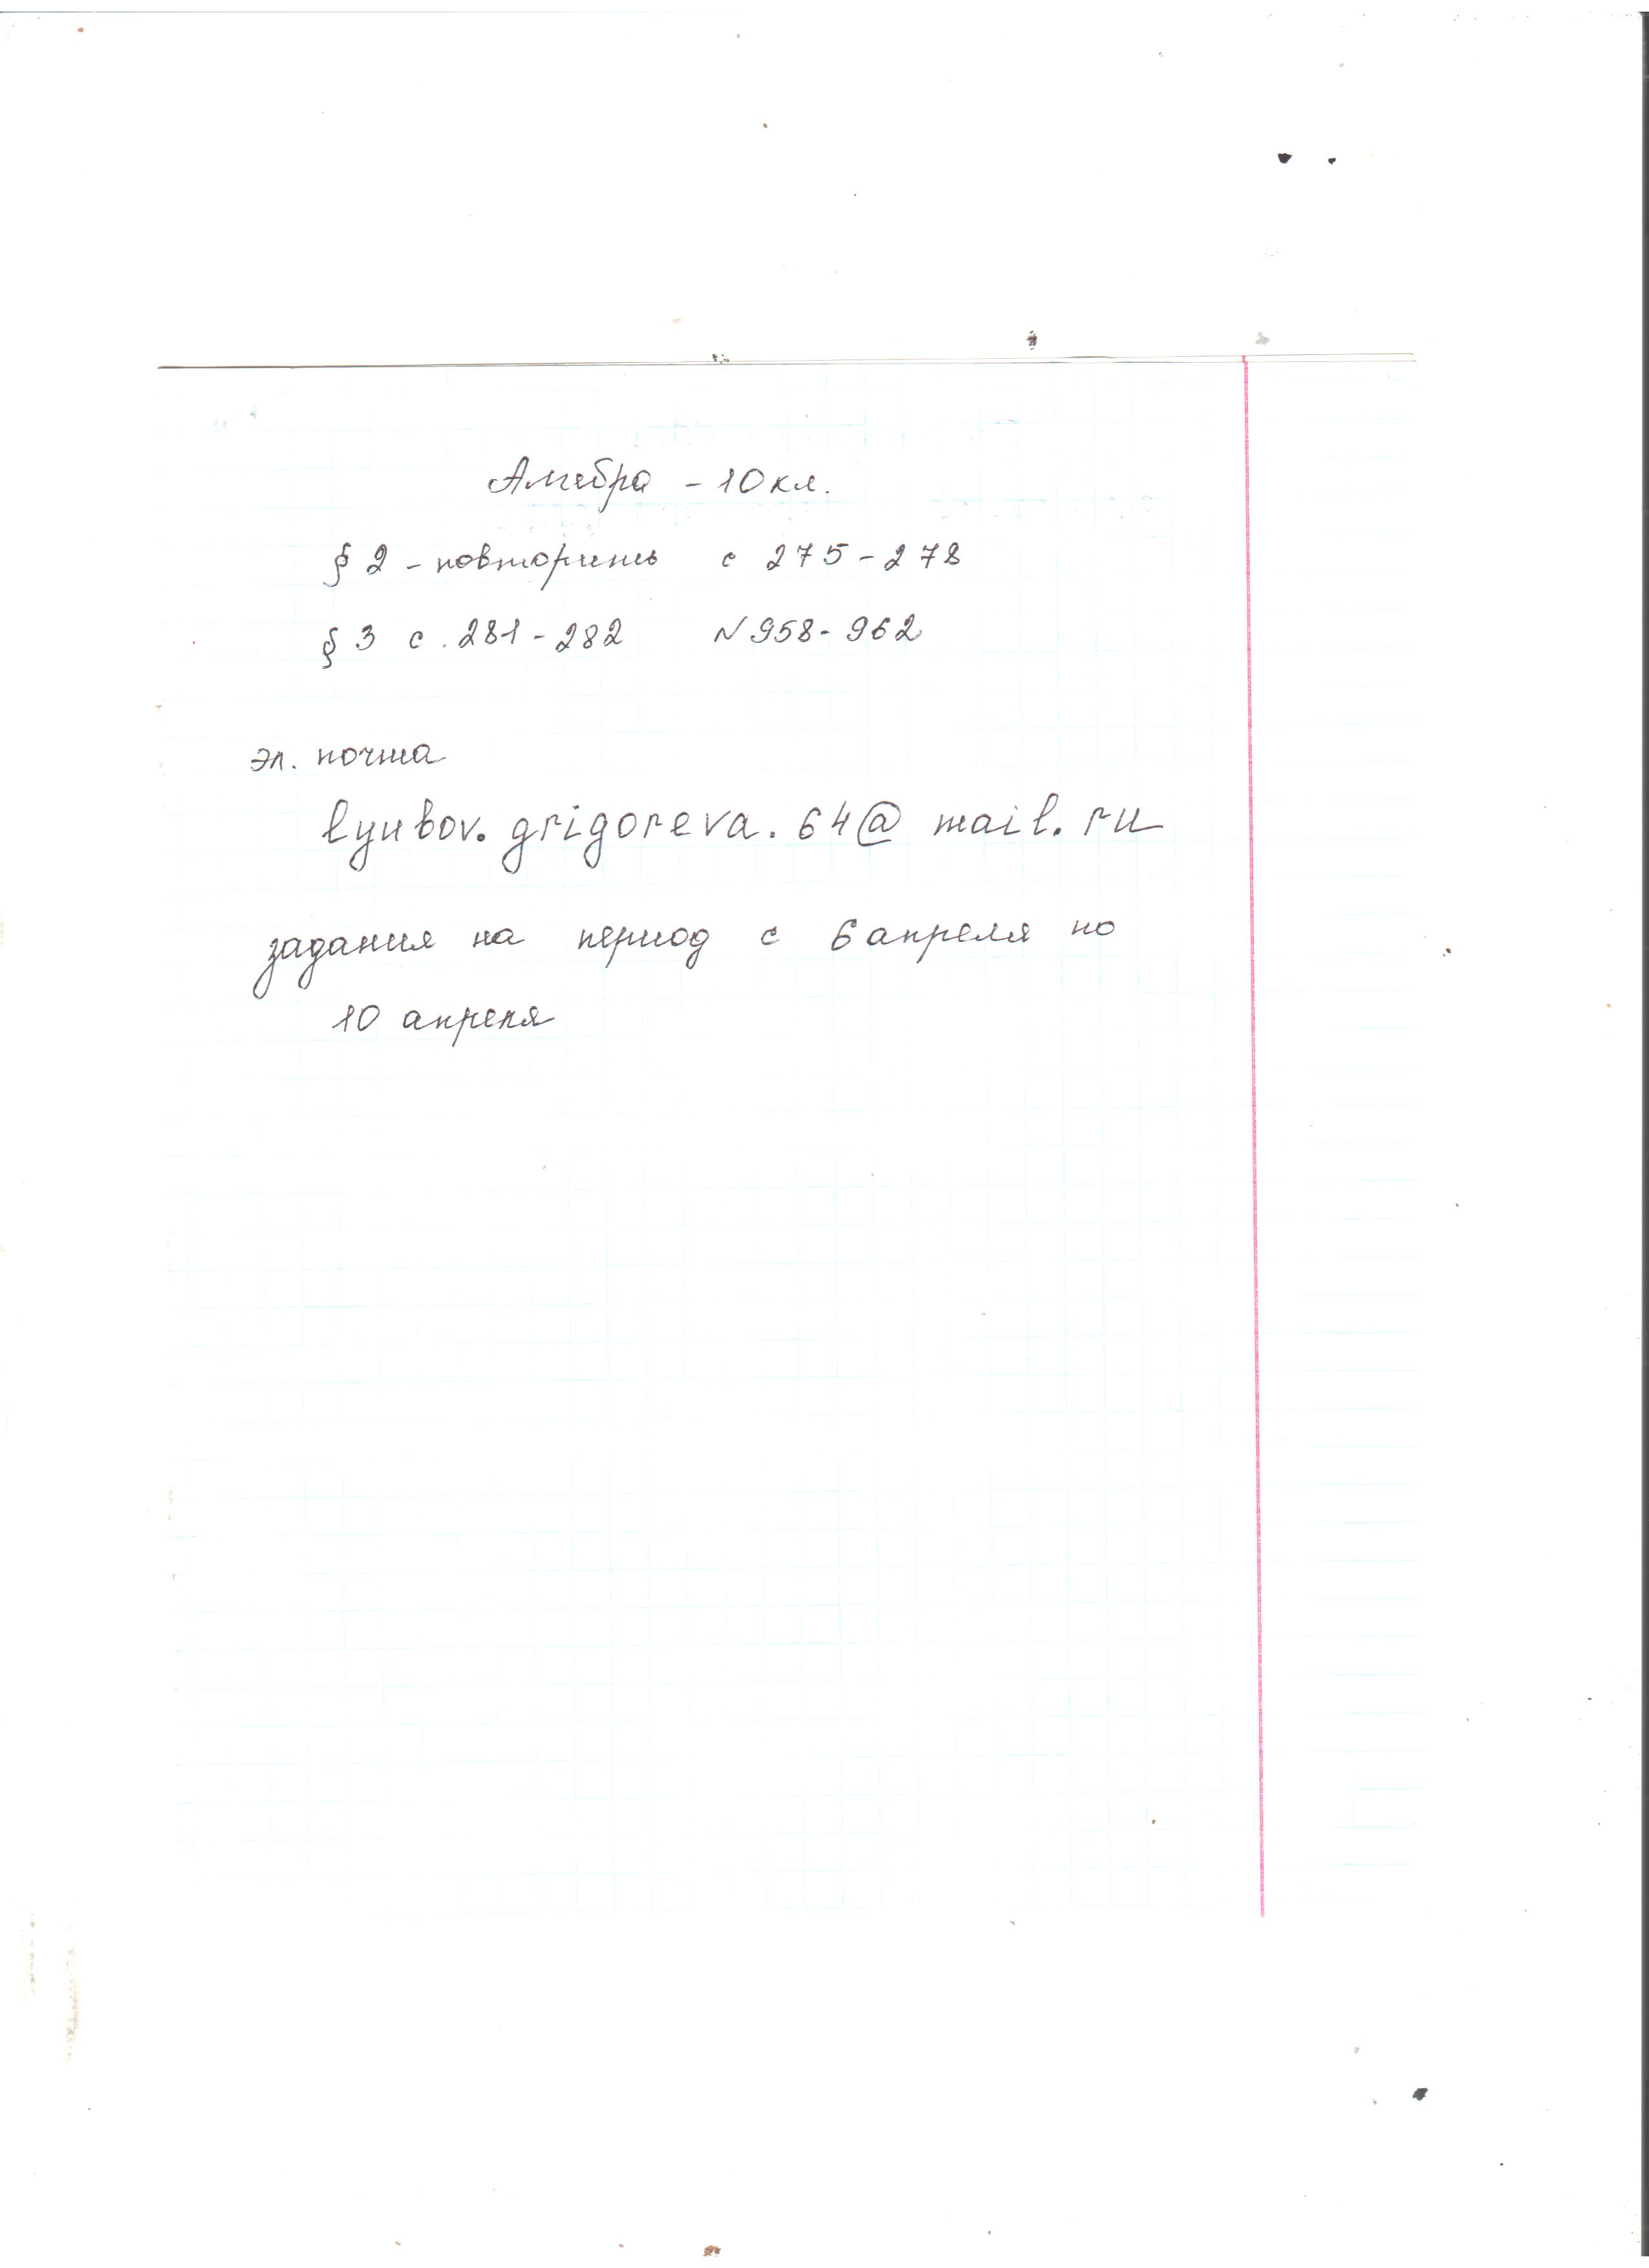 Алгебра - 10 кл.
§ 2 - повторить с 275 - 278
§ 3 с. 281 - 282 N 958 - 962
эл. почта
lyubov.grigoreva.64@mail.ru
задания на период с 6 апреля по
10 апреля